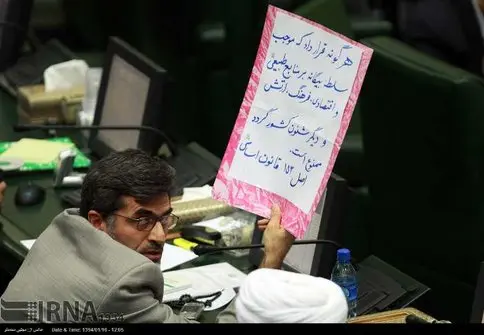 هر گونه قرار داد که موجب
سلطه بیگانه بر منابع طبیعی
و اقتصادی، فرهنگ، ارتش
و دیگر شئون کشور گردد
ممنوع است.
اصل ۱۵۳ قانون اساسی
IRNA
عکس از:
Date & Time: 1394/01/16 - 12:05